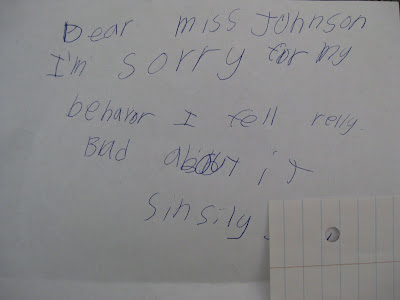 Dear miss Johnson
I'm sorry for my
behavor I fell relly.
Bad about it
Sinsily